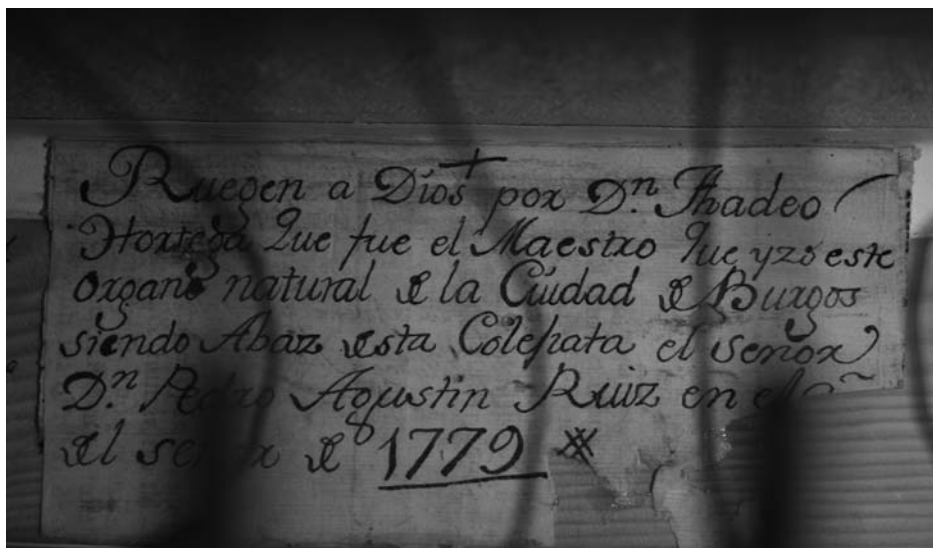 Ruegen a Dios por Dn. Thadeo
Hortega Que fue el Maestro Que yzo este
organo natural de la Ciudad de Burgos
siendo Abaz desta Colehata el señor
Dn. Pedro Agustin Ruiz en el
del señor de 1779